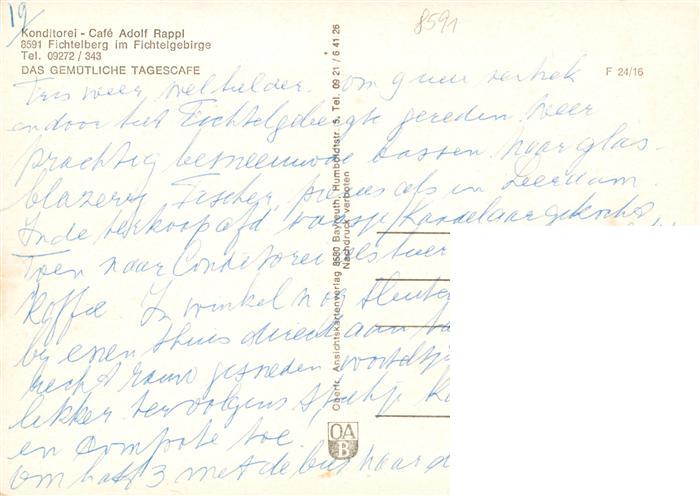 19
8591
Konditorei - Café Adolf Rappl
8591 Fichtelberg im Fichtelgebirge
Tel. 09272 / 343
DAS GEMÜTLICHE TAGESCAFE
F 24/16
weer, wel helder. om 9 uur vertrek
en door het Fichtelgebergte gereden. weer
prachtig besneeuwde bossen. Naar glas-
blazery Fischer, precies als in Leerdam.
In de verkoopafd. kandelaar gekocht
Toen naar Conditorei
koffie. In winkel
by eten thuis direct aan
gesneden worteltj
lekker vervolgens
en compote toe.
om half 3 met de bus naar d
Oberfr. Ansichtskartenverlag 8580 Bayreuth, Humboldtstr. 5, Tel. 09 21 / 6 41 26
Nachdruck verboten
OA
B